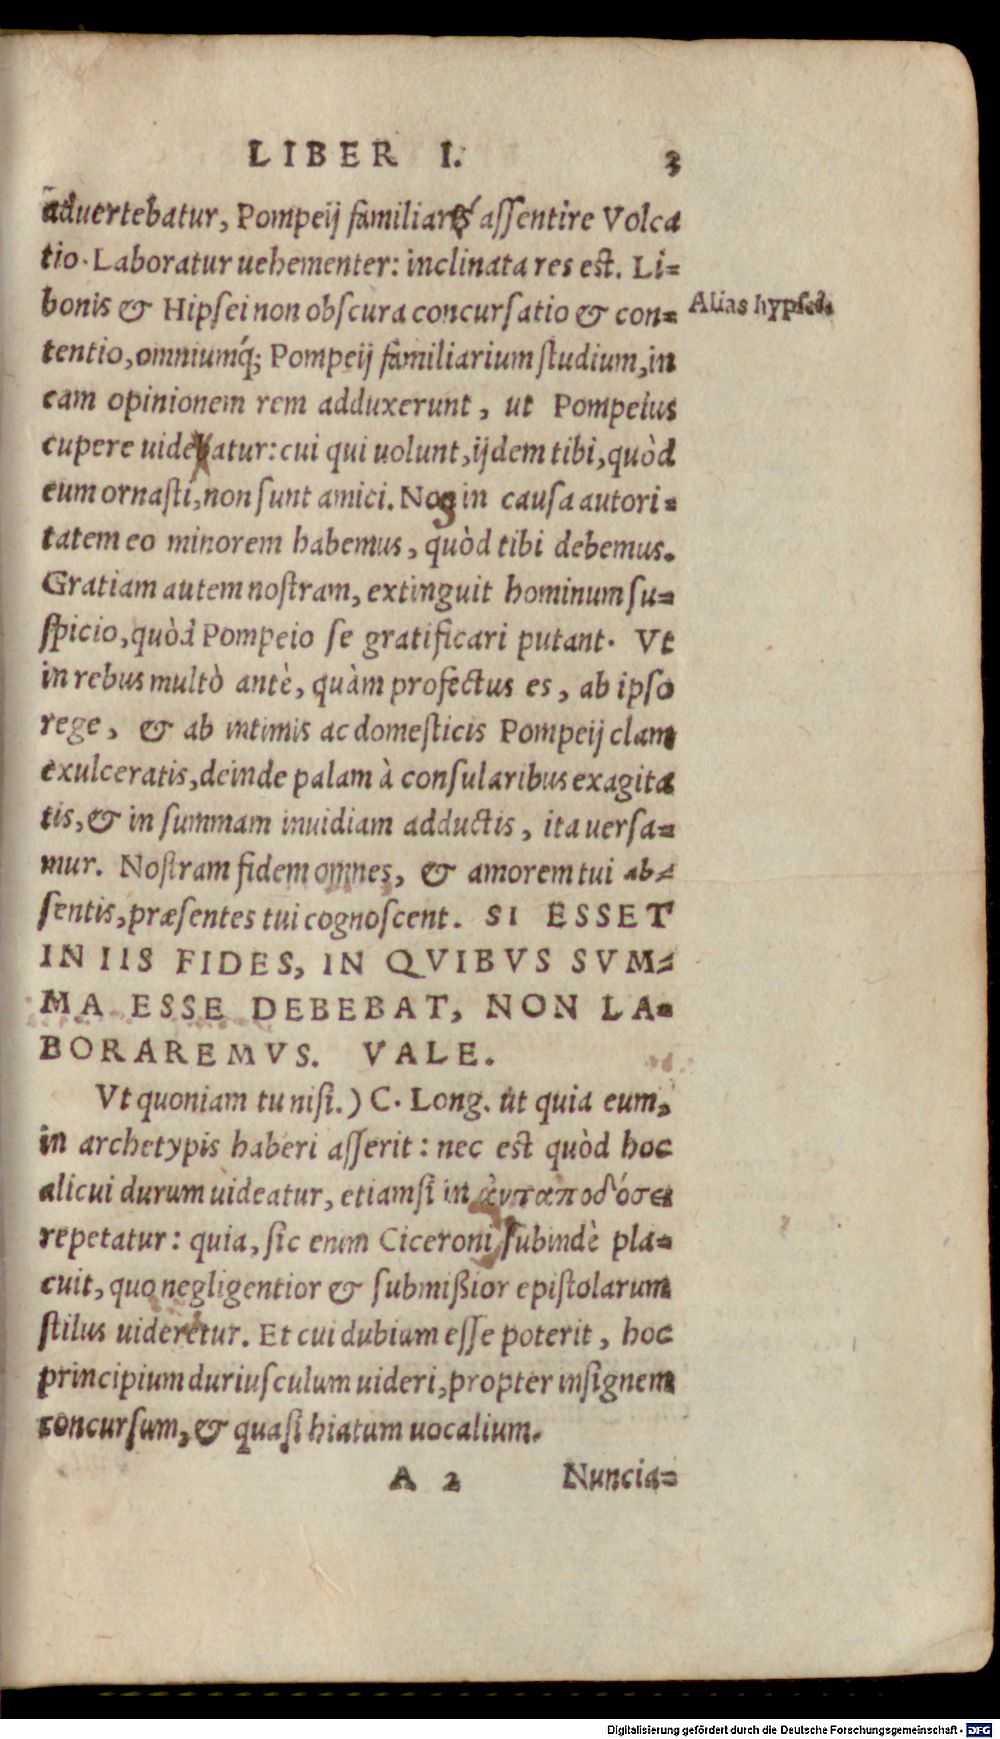 LIBER I. 3
aduertebatur, Pompeij familiares assentire Volca
tio. Laboratur uehementer: inclinata res est. Li=
bonis & Hipsei non obscura concursatio & con=
Alias hypsei.
tentio, omniumq́; Pompeij familiarium studium, in
eam opinionem rem adduxerunt, ut Pompeius
cupere uideatur: cui qui uolunt, ijdem tibi, quòd
eum ornasti, non sunt amici. Nos in causa autori=
tatem eo minorem habemus, quòd tibi debemus.
Gratiam autem nostram, extinguit hominum su=
spicio, quòd Pompeio se gratificari putant. Vt
in rebus multò antè, quàm profectus es, ab ipso
rege, & ab intimis ac domesticis Pompeij clam
exulceratis, deinde palam à consularibus exagita
tis, & in summam inuidiam adductis, ita uersa=
mur. Nostram fidem omnes, & amorem tui ab=
sentis, præsentes tui cognoscent. SI ESSET
IN IIS FIDES, IN QVIBVS SVM=
MA ESSE DEBEBAT, NON LA=
BORAREMVS. VALE.
Vt quoniam tu nisi.) C. Long. ut quia eum,
in archetypis haberi asserit: nec est quòd hoc
alicui durum uideatur, etiamsi in ἀνταποδόσει
repetatur: quia, sic enim Ciceroni subindè pla=
cuit, quo negligentior & submißior epistolarum
stilus uideretur. Et cui dubium esse poterit, hoc
principium duriusculum uideri, propter insignem
concursum, & quasi hiatum uocalium.
A 2 Nuncia=
Digitalisierung gefördert durch die Deutsche Forschungsgemeinschaft - DFG